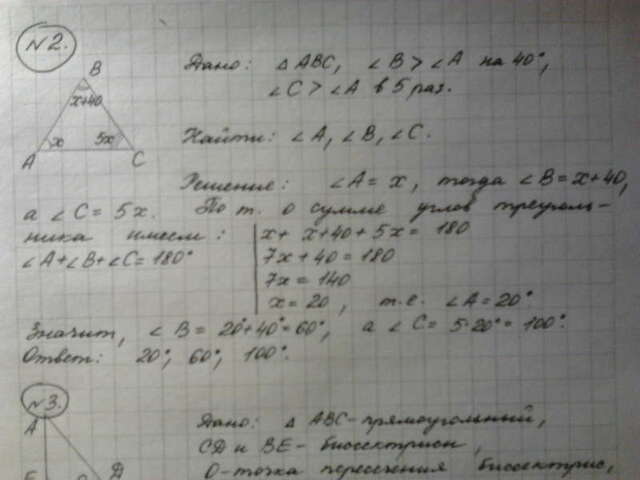 №2.
Дано: △ ABC, ∠B > ∠A на 40°,
∠C > ∠A в 5 раз.
B
x+40
x
5x
A
C
Найти: ∠A, ∠B, ∠C.
Решение: ∠A = x, тогда ∠B = x+40,
а ∠C = 5x. По т. о сумме углов треуголь-
ника имеем:
∠A+∠B+∠C=180°
x+ x+40+5x= 180
7x+40=180
7x=140
x=20, т.е. ∠A=20°
Значит, ∠B= 20°+40°=60°, а ∠C= 5·20°= 100°.
Ответ: 20°, 60°, 100°.
№3.
A
D
Дано: △ ABC-прямоугольный,
CD и BE- биссектрисы,
O-точка пересечения биссектрис,